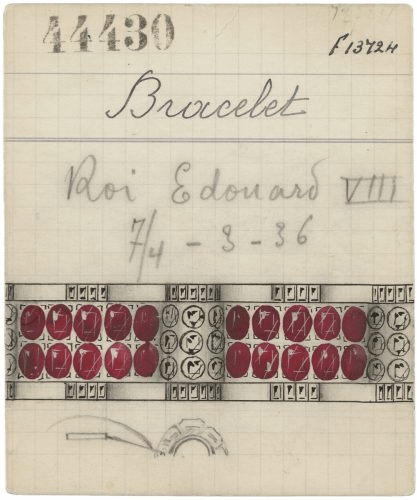 44430
F 13724
Bracelet
Roi Edouard VIII
7/4 - 3 - 36